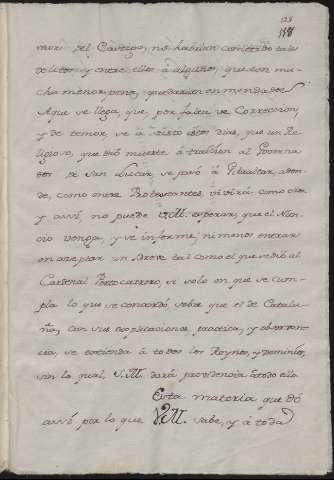 123
118
mor del Castigo, no habrian cometido tales
delitos y entre ellos á algunos, que con mu-
cha menor pena, quedarian enmendados
A que se llega, que, por falta de Correccion,
y de temor, se á visto estos dias, que un Re-
ligioso, que dió muerte á traicion al Governa-
dor de San Lucar, se pasó á Gibraltar, adon-
de, como entre Protestantes, vivirá como ellos
y assi, no puede V.M. esperar, que el Nun-
cio venga, y se informe, ni menos entrar
en azeptar un Breve tal como el que se dió al
Cardenal Portocarrero, si solo en que se cum-
pla lo que se concordó, sobre que el de Catalu-
ña, con sus explicaciones, practica, y observan-
cia, se extienda á todos los Reynos, y Dominios,
sin lo qual, V.M. dará providencia á todo ello
Esta materia quedó
assi por lo que V.M. sabe, y á toda